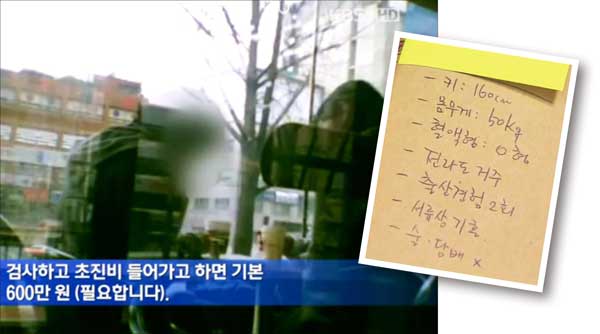 KBS HD
검사하고 초진비 들어가고 하면 기본
600만 원 (필요합니다).
- 키 : 160cm
- 몸무게 : 50kg
- 혈액형 : O형
- 전라도 거주
- 출산경험 2회
- 서류상 기혼
- 술·담배 x